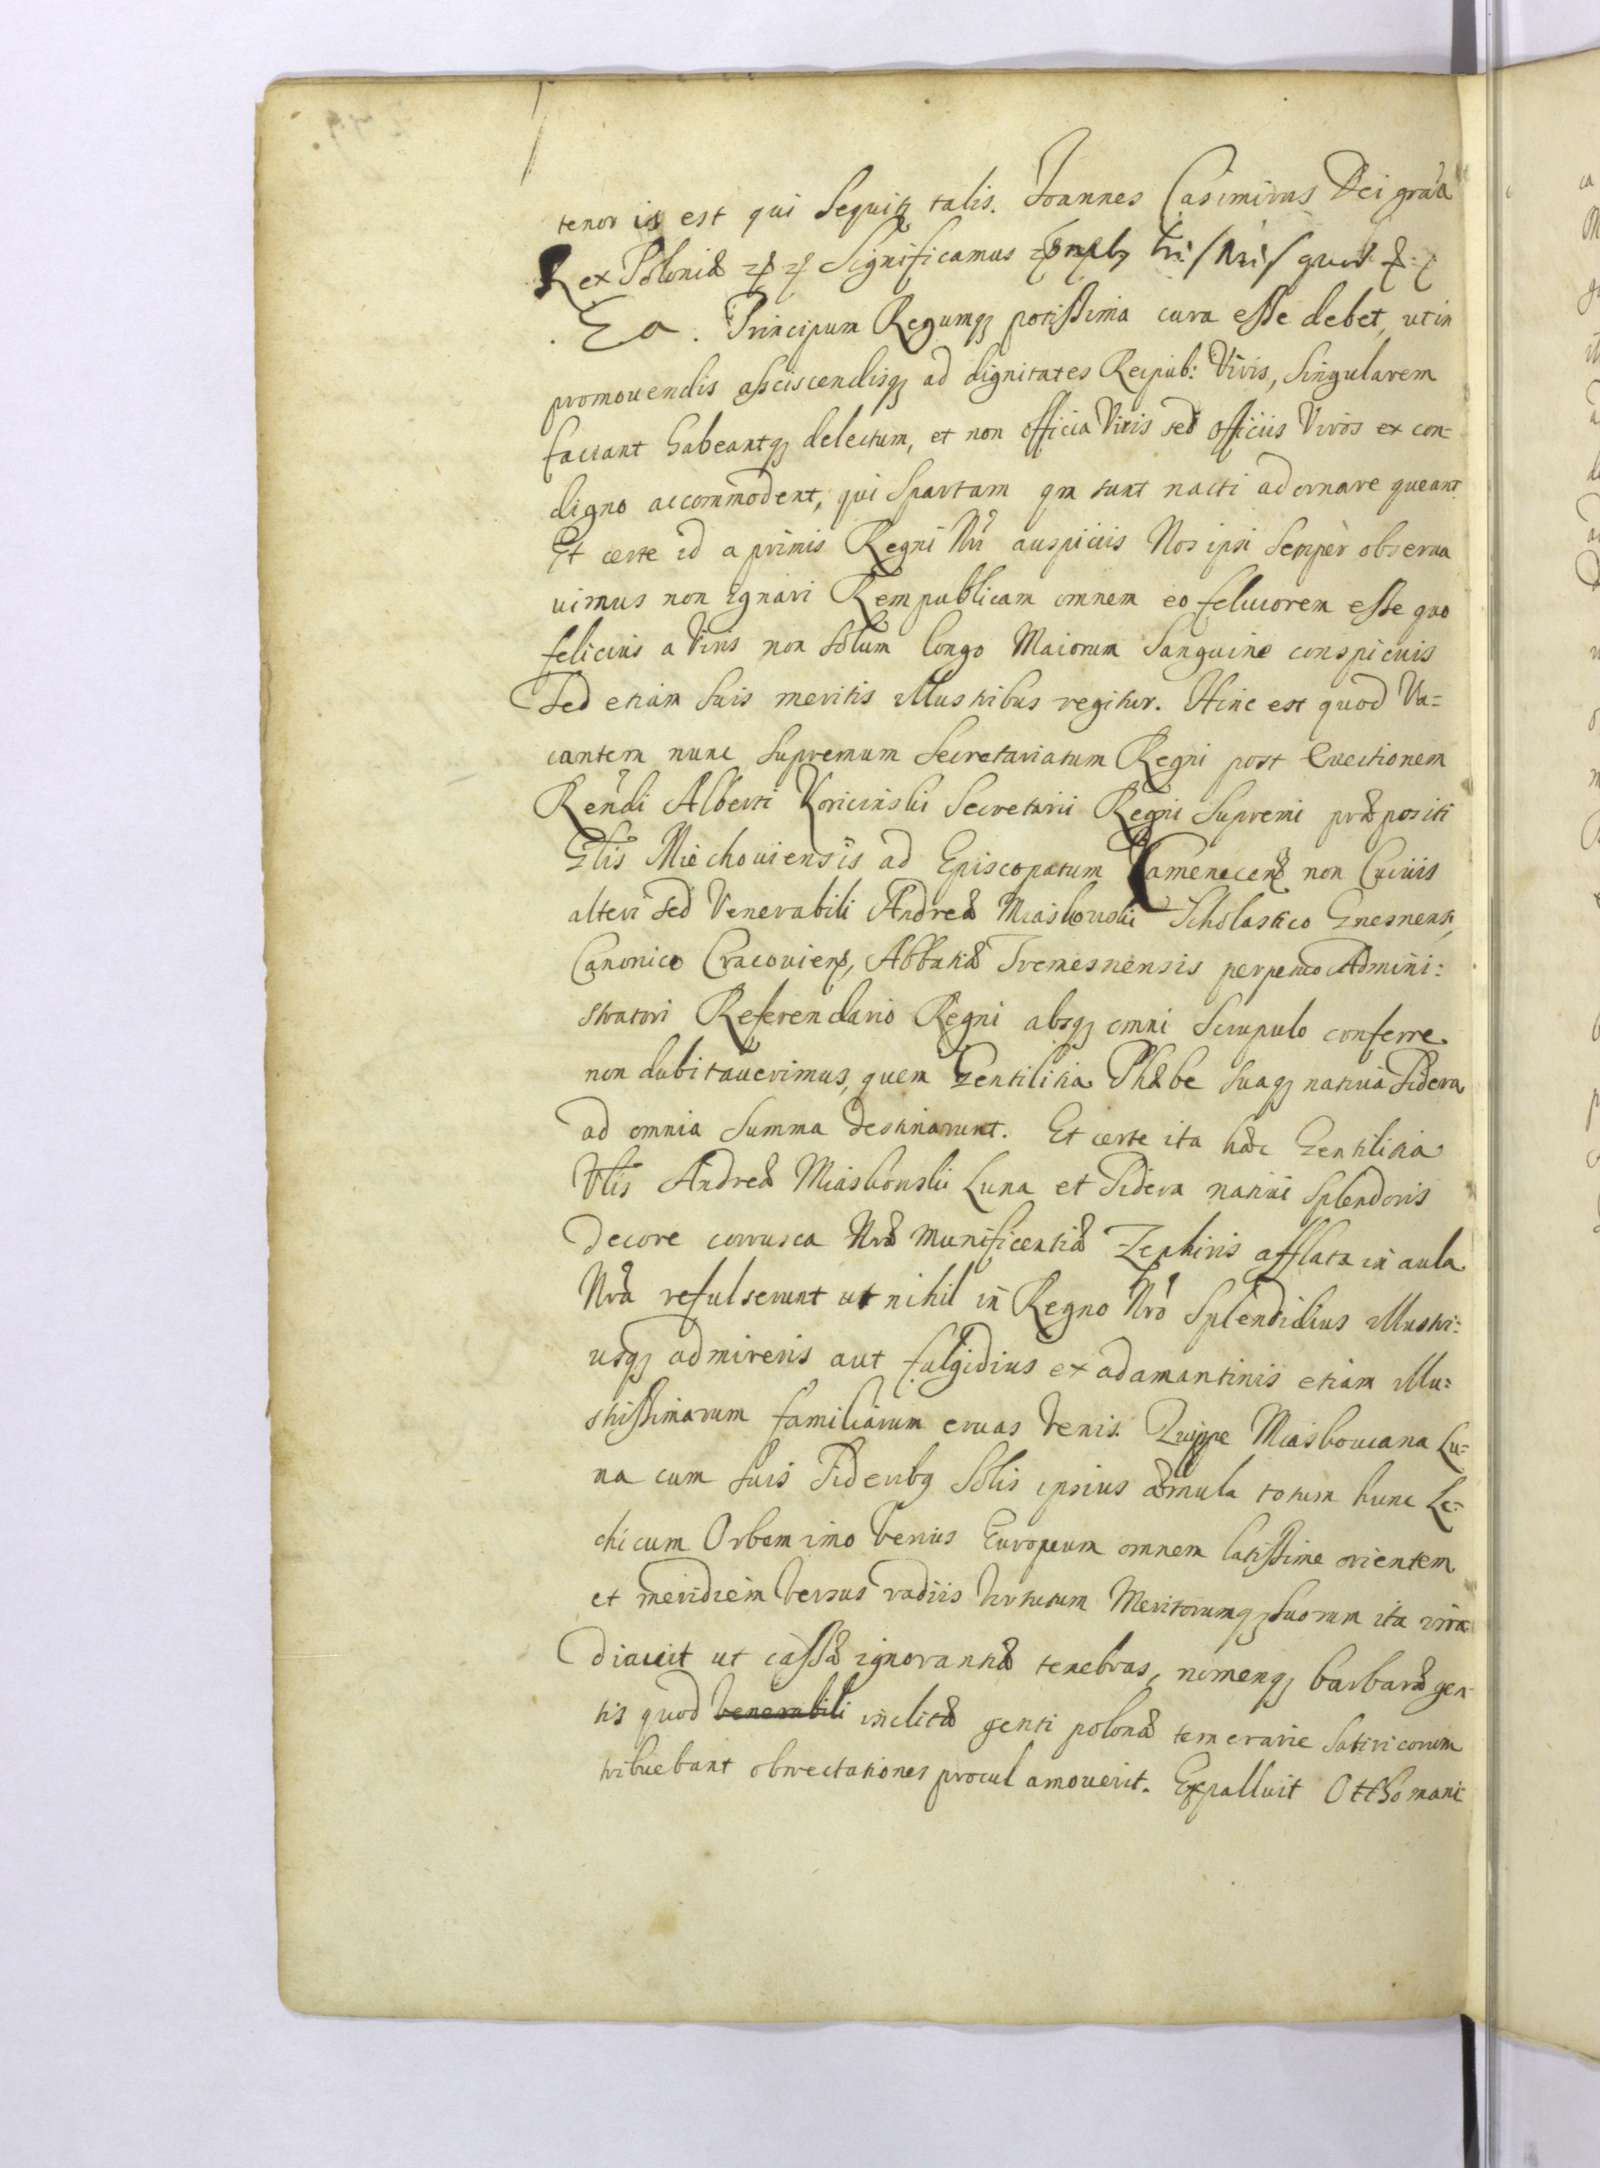 tenor is est qui Sequitꝛ talis. Joannes Casimirus Dei gra̅a
Rex Poloniæ Significamus
Ea. Principum Regumqꝫ potissima cura esse debet, ut in
promouendis asciscendisqꝫ ad dignitates Reipub: Viris, Singularem
faciant habeantqꝫ delectum, et non officia Viris sed officiis Viros ex con-
digno accommodent, qui Spartam qm sunt nacti adornare queant
Et certe id a primis Regni Nri auspiciis Nos ipsi Sempèr obserua
uimus non ignari Rempublicam omnem eo feliciorem esse quo
felicius a Viris non Solum longo Maiorum Sanguine conspicuis
Sed etiam Suis meritis illustribus regitur. Hinc est quod Va=
cantem nunc Supremum Secretariatum Regni post Euectionem
Rendi Alberti Koricinskii Secretarii Regni Supremi præpositi
Glis Miechouiensis ad Episcopatum Camenecen non Cuiuis
alteri sed Venerabili Andreæ Miaskouskii Scholastico Gnesnensi,
Canonico Cracouien, Abbatiæ Tremesnensis perpetuo Admini:
stratori Referendario Regni absqꝫ omni Scrupulo conferre
non dubitauerimus, quem Gentilitia Phæbe Suaqꝫ natiua Sidera
ad omnia Summa destinarunt. Et certe ita hæc Gentilitia
Vlis Andreæ Miaskouskii Luna et Sidera natiui Splendoris
decore corrusca Nræ munificentiæ Zephiris afflata in aula
Nra refulserunt ut nihil in Regno Nro Splendidius illustri:
usqꝫ admireris aut fulgidius ex adamantinis etiam illu:
strissimarum familiarum eruas Venis. Quippe Miaskouiana Lu:
na cum Suis Sideribꝫ Solis ipsius æmula totum hunc Le:
chicum Orbem imo Verius Europeum omnem latissime orientem
et meridiem Versus radiis Virtutum Meritorumqꝫ Suorum ita irra
diauit ut cassæ ignorantiæ tenebras, nomenqꝫ barbaræ gen-
tis quod venerabili inclitæ genti polonæ temerarie Satiricorum
tribuebant obtrectationes procul amouerit. Expalluit Otthomani